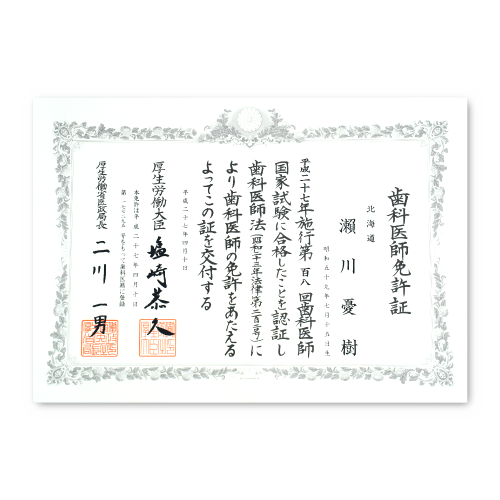 歯科医師免許証
北海道
瀬川憂樹
昭和五十九年七月十五日生
平成二十七年施行第百八回歯科医師
国家試験に合格したことを認証し
歯科医師法(昭和二十三年法律第二百二号)に
より歯科医師の免許をあたえる
よってこの証を交付する
平成二十七年四月十日
厚生労働大臣 塩崎恭久
本免許は平成二十七年四月十日
厚生労働省医政局長 二川一男